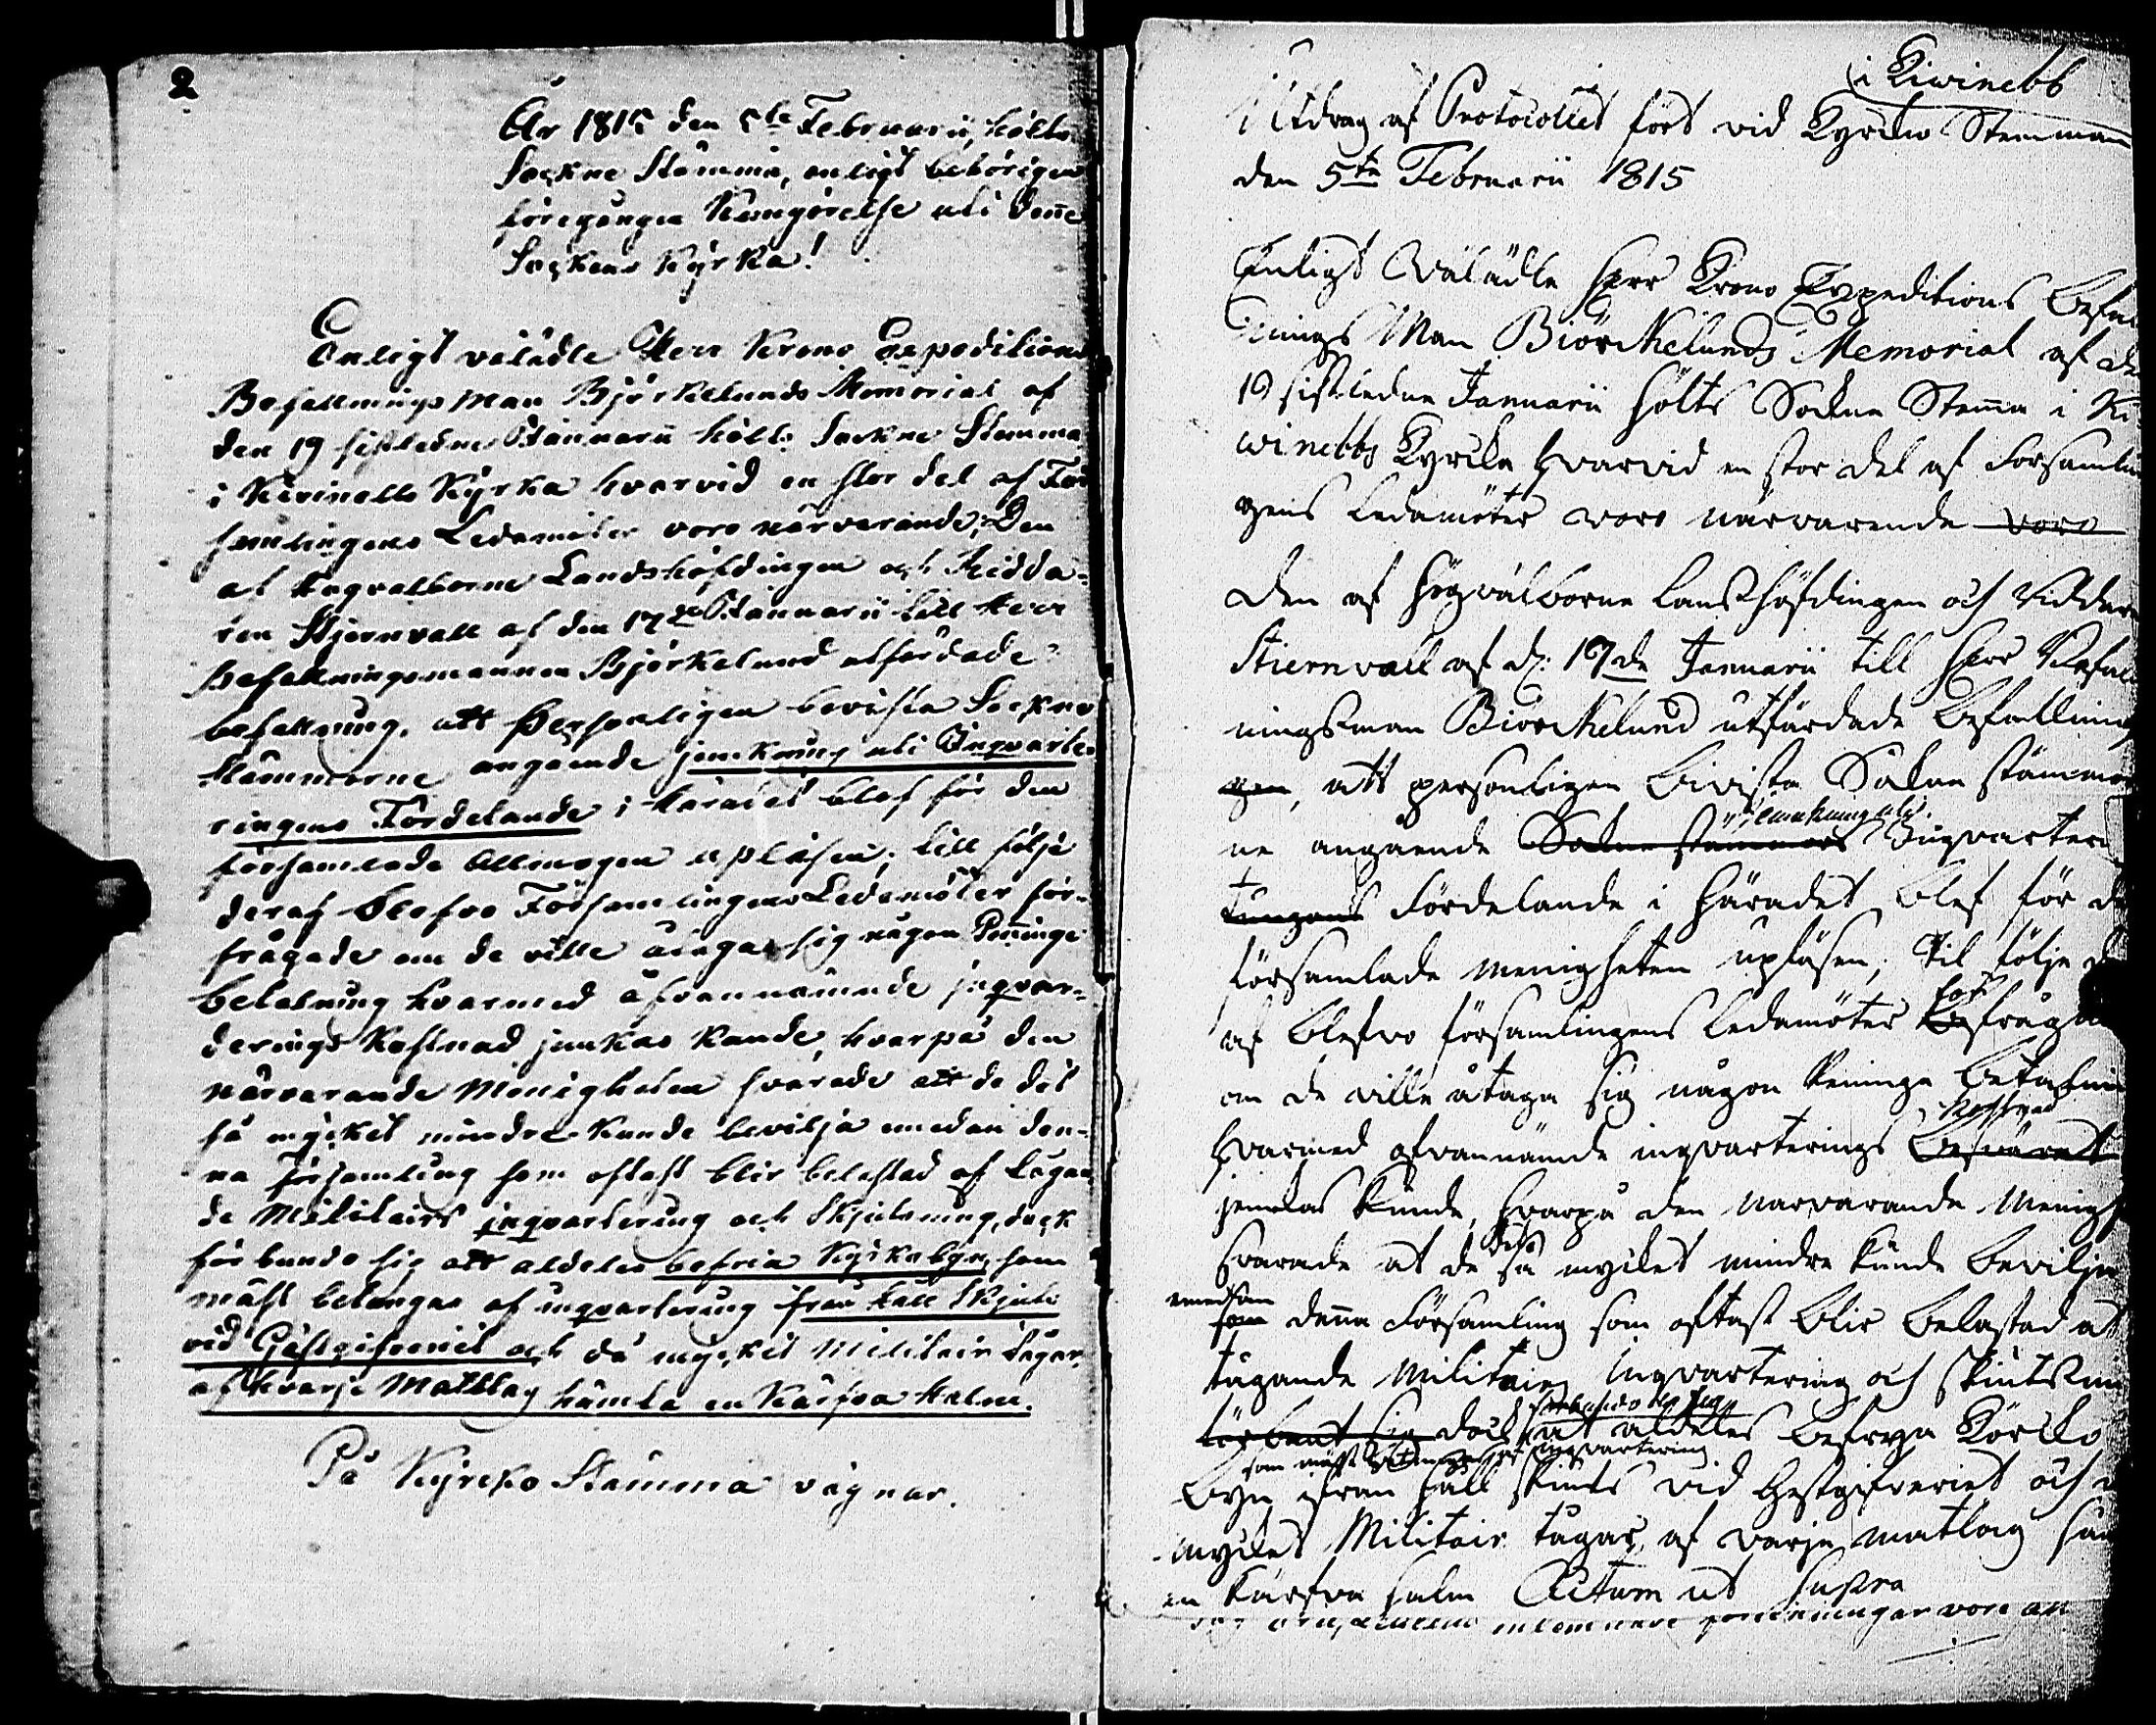 2
År 1815 den 5te Februarii, hölts
Sockne Stämma, enligt behörigen
föregången Kungörelse uti denne
Sockens Kyrka!
Enligt välädle Herr Krono Expeditions
Befallnings Man Björkelunds Memorial af
den 19 sistledne Januarii hölts Sockne Stämma
i Kivinebb Kyrka hvarvid en stor del af För
samlingens Ledamöter voro närvarande; Den
af Högvälborne Landshöfdingen och Ridda-
ren Stjernvall af den 17de Januarii till Herr
Befallningsmannen Björkelund utfärdade
befallning, att Personligen bevista Sockne
stämmorne angående jemkning uti Inqvarte
ringens Fördelande i Häradet blef för den
församlade Allmogen upläsen; till följe
deraf blefvo Församlingens Ledamöter för-
frågade om de ville åtaga sig någon Penninge
betalning hvarmed ofvannämnde inqvar-
derings Kostnad jemkas kunde, hvarpå den
närvarande Menigheten svarade att de det
så mycket mindre kunde bevilja emedan den-
na församling som oftast blir belastad af tågan
de Militairs inqvartering och Skjutsning, dock
förbundo sig att aldeles befria Kyrkobyn, som
mäst betungas af inqvartering från håll Skjuts
vid Gästgifveriet och då mycket Militair tågar,
af hvarje Matlag hämta en Kärfva Halm.
På Kyrcko Stämma vägnar.
i Kiwinebb
Utdrag af Protocollet fört vid Kyrcko Stemman
den 5te Februarii 1815
Enligt Wälädle Herr Krono Expeditions Befall
nings Man Biörckelunds Memorial af den
19 sistledne Januarii hölts Sockne Stemma i Ki
winebbs Kyrcka hvarvid en stor del af Församlin
gens Ledamöter woro närvarende voro
Den af Högvälborne Landshöfdingen och Riddaren
Stiernvall af d: 17de Januarii till Herr Befall
ningsman Biörckelund utfärdade Befallning
gen, att personligen bivista Sockne stämmor
jemkning uti
ne angående Sockne stämmors Inqvarter
tungens Fördelande i Häradet, blef för de
församlade menigheten upläsen; Til följe d
för
af blefvo församlingens Ledamöter befrågade
om de ville åtaga sig någon Peninge Betalning
kostnad
hvarmed ofvannämde inqvarterings besväret
jemkas kunde, hvarpå den närvarande Menigh
det
svarade at de så mycket mindre kunde bevilja
emedan
som denna Församling som oftast blir belastad af
tågande Militairs Inqvartering och skiutsni
förbundo de sig
förbant sig dock at aldeles befrya Körcko
som mäst betungas af inqvartering
Byn ifran håll skiuts vid Gestgifveriet och
mycket Militair tågar, af varje matlag hä
en kärfva halm Actum ut Supra